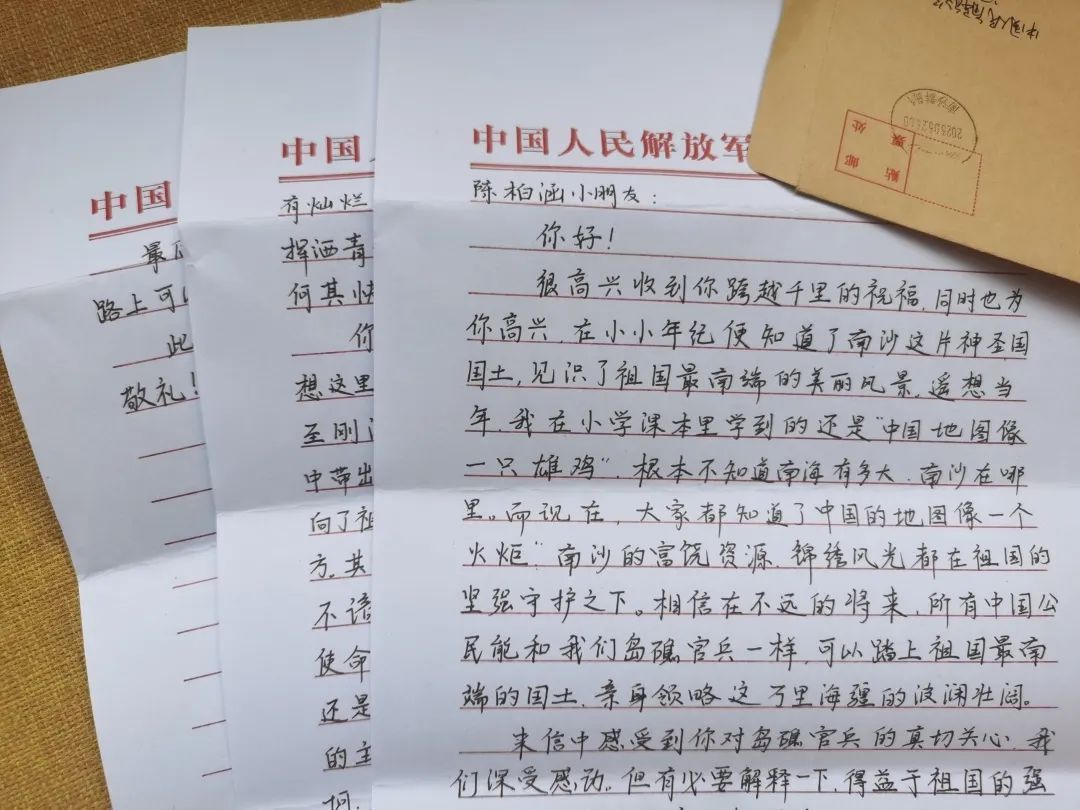 中国人民解放军
陈柏涵小朋友：
你好！
很高兴收到你跨越千里的祝福，同时也为
你高兴，在小小年纪便知道了南沙这片神圣国
国土，见识了祖国最南端的美丽风景，遥想当
年，我在小学课本里学到的还是“中国地图像
一只雄鸡”，根本不知道南海有多大，南沙在哪
里。而现在，大家都知道了中国的地图像一个
火炬”南沙的富饶资源，锦绣风光都在祖国的
坚强守护之下。相信在不远的将来，所有中国公
民能和我们岛礁官兵一样，可以踏上祖国最南
端的国土，亲身领略这万里海疆的波澜壮阔。
来信中感受到你对岛礁官兵的真切关心，我
们深受感动。但有必要解释一下，得益于祖国的强
中国
有灿烂
挥洒青
何其快
你
想这里
至刚
中带出
向了祖
方，其
不谙
使命
还是
的主
何，
中国
最后
路上可以
此
敬礼！
贴邮
票处